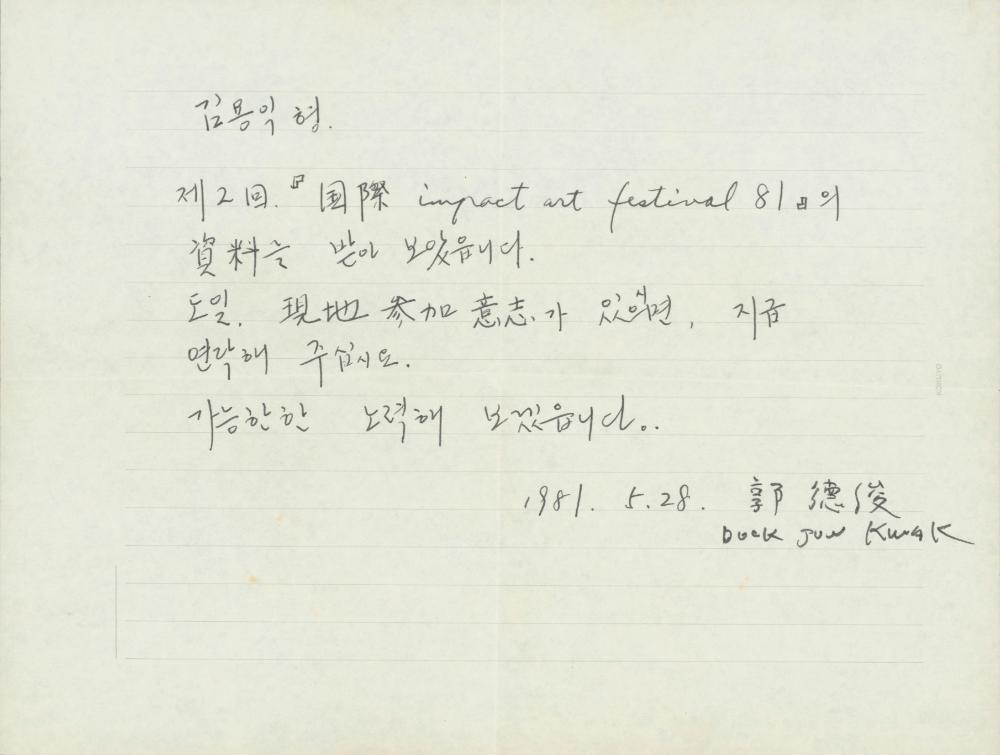 김용익 형.
제2回.『国際 impact art festival 81』의
資料는 받아 보았읍니다.
도일. 現地 参加 意志가 있으시면, 지급
연락해 주십시요.
가능한한 노력해 보겠읍니다..
1981. 5.28. 郭 德俊
DUCK JUN KWAK